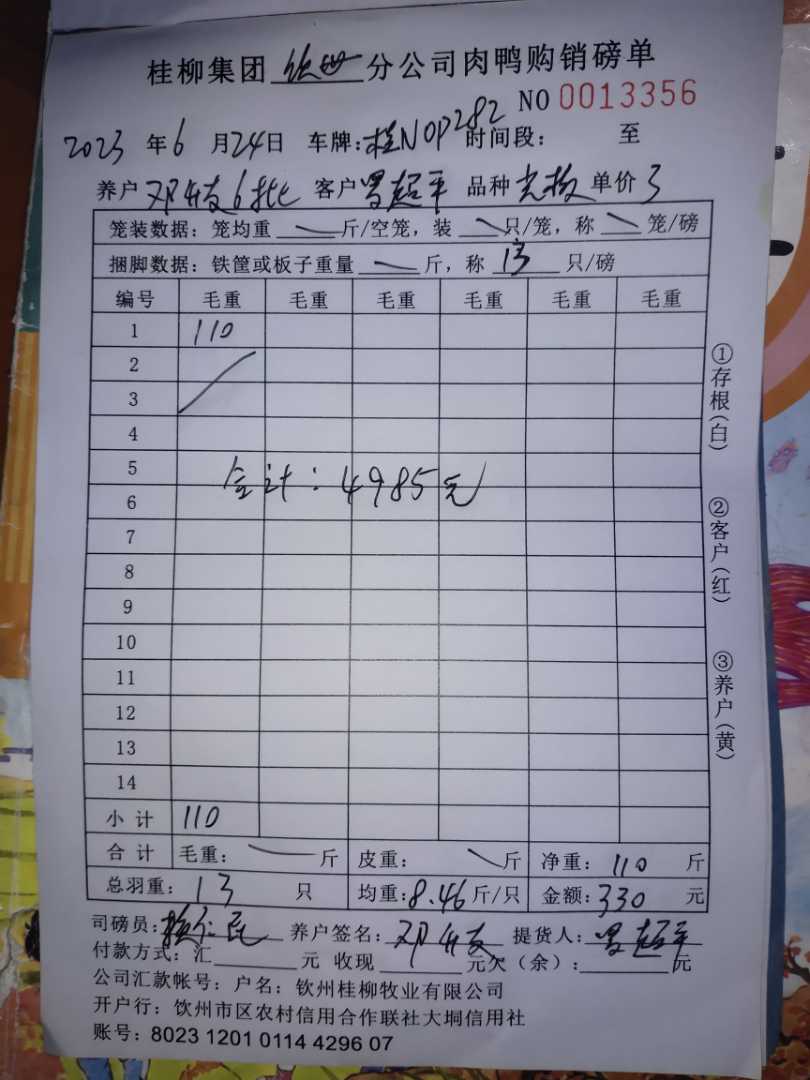 桂柳集团 钦州 分公司肉鸭购销磅单
NO 0013356
2023 年 6 月 24 日 车牌:桂N0P282 时间段: 至
养户 邓 6批 客户 罗超平 品种 单价 3
笼装数据:笼均重 斤/空笼,装 只/笼,称 笼/磅
捆脚数据:铁筐或板子重量 斤,称 13 只/磅
编号 毛重 毛重 毛重 毛重 毛重 毛重
1 110
2
3
4
5
合计:4985元
6
7
8
9
10
11
12
13
14
小 计 110
合 计 毛重: 斤 皮重: 斤 净重: 110 斤
总羽重: 13 只 均重:8.46 斤/只 金额:330 元
司磅员: 养户签名: 邓 提货人: 罗超平
付款方式:汇 元 收现 元欠(余): 元
公司汇款帐号:户名:钦州桂柳牧业有限公司
开户行:饮州市区农村信用合作联社大垌信用社
账号:8023 1201 0114 4296 07
①存根(白)
②客户(红)
③养户(黄)